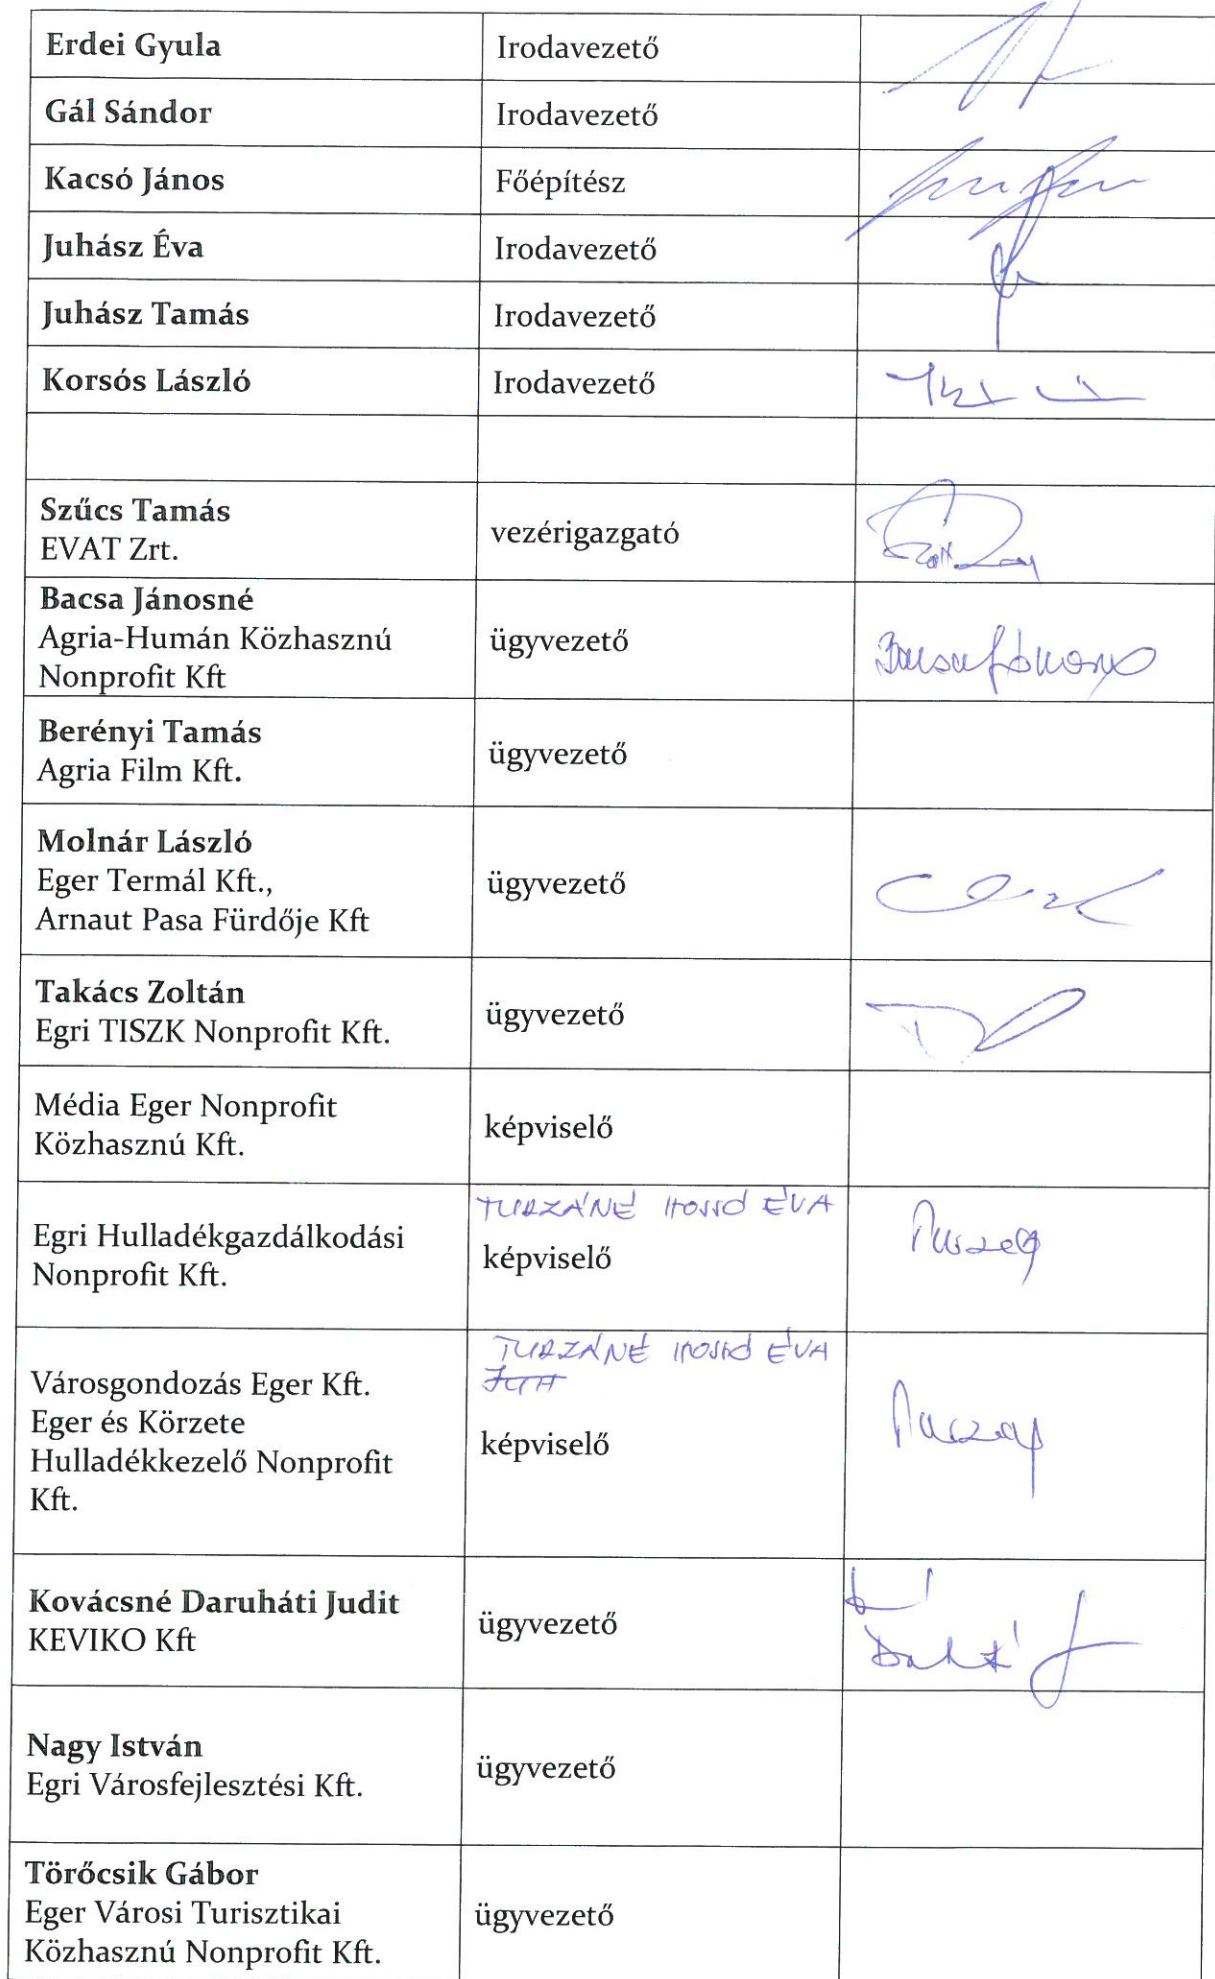 Erdei Gyula
Irodavezető
Gál Sándor
Irodavezető
Kacsó János
Főépítész
Juhász Éva
Irodavezető
Juhász Tamás
Irodavezető
Korsós László
Irodavezető
Szűcs Tamás
EVAT Zrt.
vezérigazgató
Bacsa Jánosné
Agria-Humán Közhasznú
Nonprofit Kft
ügyvezető
Berényi Tamás
Agria Film Kft.
ügyvezető
Molnár László
Eger Termál Kft.,
Arnaut Pasa Fürdője Kft
ügyvezető
Takács Zoltán
Egri TISZK Nonprofit Kft.
ügyvezető
Média Eger Nonprofit
Közhasznú Kft.
képviselő
Egri Hulladékgazdálkodási
Nonprofit Kft.
TURZÁNÉ ÉVA
képviselő
Városgondozás Eger Kft.
Eger és Körzete
Hulladékkezelő Nonprofit
Kft.
TURZÁNÉ ÉVA
képviselő
Kovácsné Daruháti Judit
KEVIKO Kft
ügyvezető
Nagy István
Egri Városfejlesztési Kft.
ügyvezető
Törőcsik Gábor
Eger Városi Turisztikai
Közhasznú Nonprofit Kft.
ügyvezető